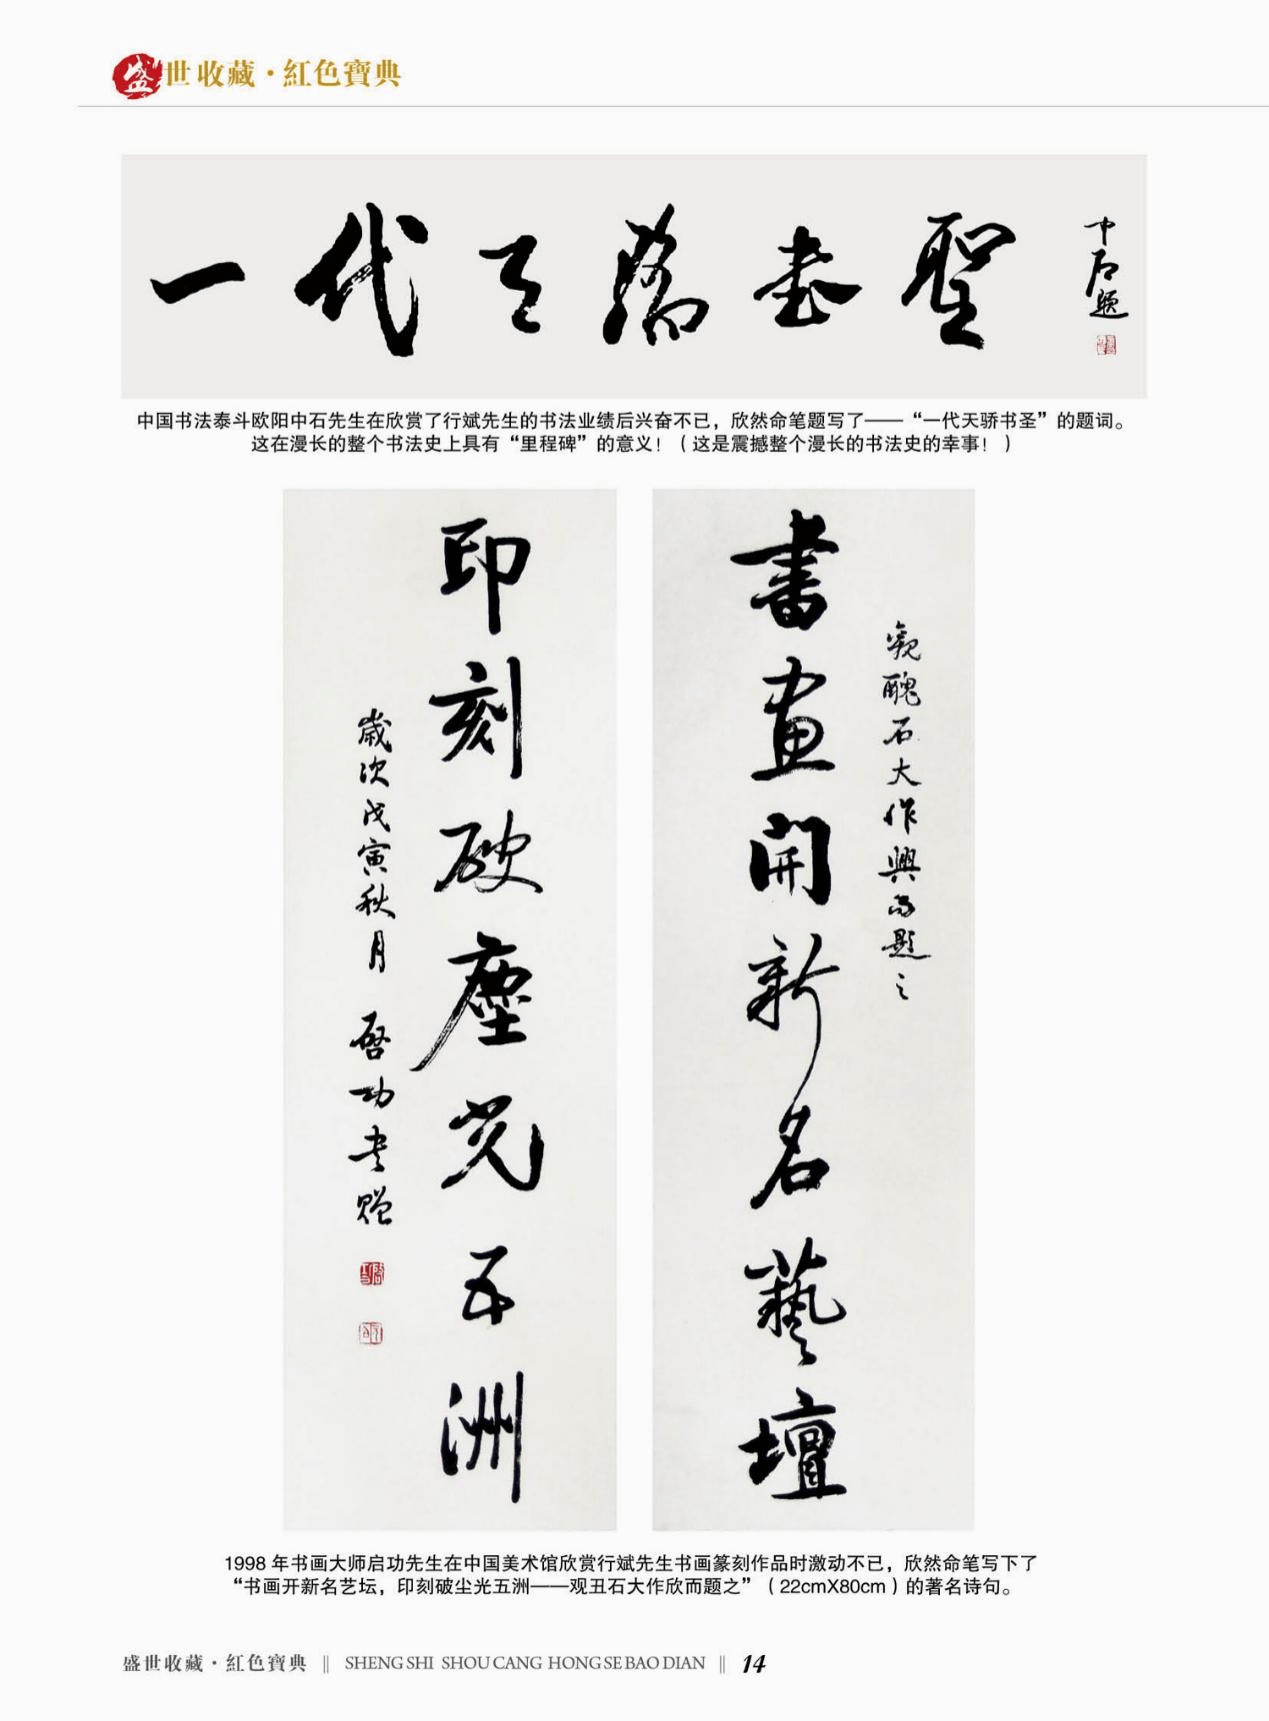 盛世收藏·紅色寶典
一代天驕书聖
中石题
中国书法泰斗欧阳中石先生在欣赏了行斌先生的书法业绩后兴奋不已，欣然命笔题写了——“一代天骄书圣”的题词。
这在漫长的整个书法史上具有“里程碑”的意义！（这是震撼整个漫长的书法史的幸事！）
觀醜石大作興而题之
書畫開新名藝壇
印刻破塵光五洲
歲次戊寅秋月 啓功书赠
1998 年书画大师启功先生在中国美术馆欣赏行斌先生书画篆刻作品时激动不已，欣然命笔写下了
“书画开新名艺坛，印刻破尘光五洲——观丑石大作欣而题之”（22cmX80cm）的著名诗句。
盛世收藏·紅色寶典 || SHENG SHI SHOU CANG HONG SE BAO DIAN || 14